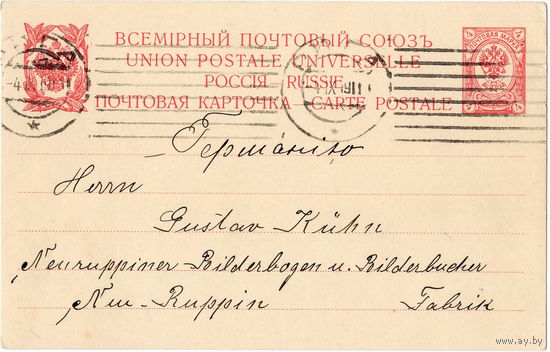 ВСЕМІРНЫЙ ПОЧТОВЫЙ СОЮЗЪ
UNION POSTALE UNIVERSELLE
РОССІЯ RUSSIE
ПОЧТОВАЯ КАРТОЧКА - CARTE POSTALE
4 ПОЧТОВАЯ МАРКА 4
4 4
Германiю
Herrn
Gustav Kühn
Neuruppiner Bilderbogen u. Bilderbucher
Neu-Ruppin Fabrik
www.ay.by